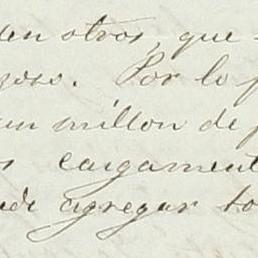 den otros, que
. Por lo
un millon de
cargament
agregar to